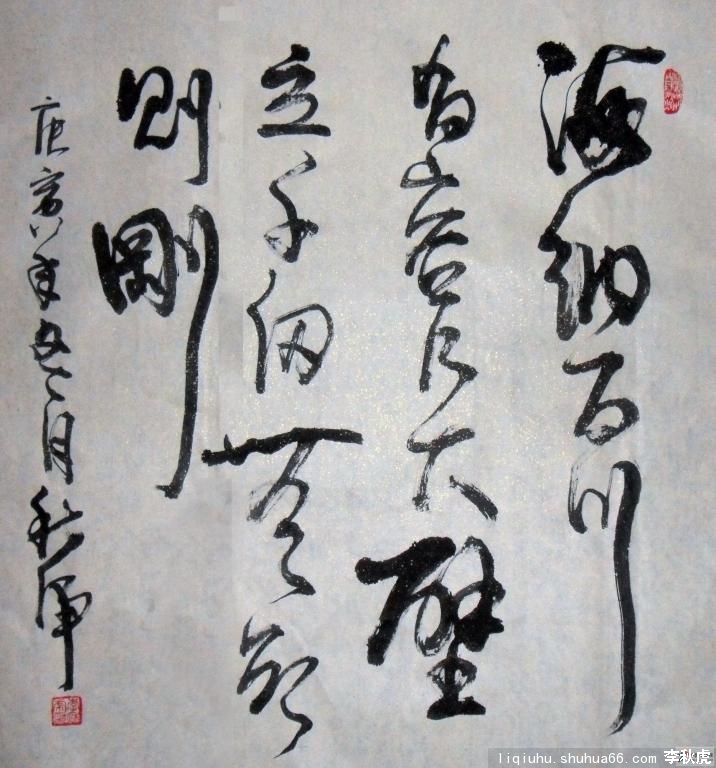 海納百川
有容乃大壁
立千仞無欲
則剛
庚寅年五月秋虎
liqiuhu.shuhua66.com 李秋虎